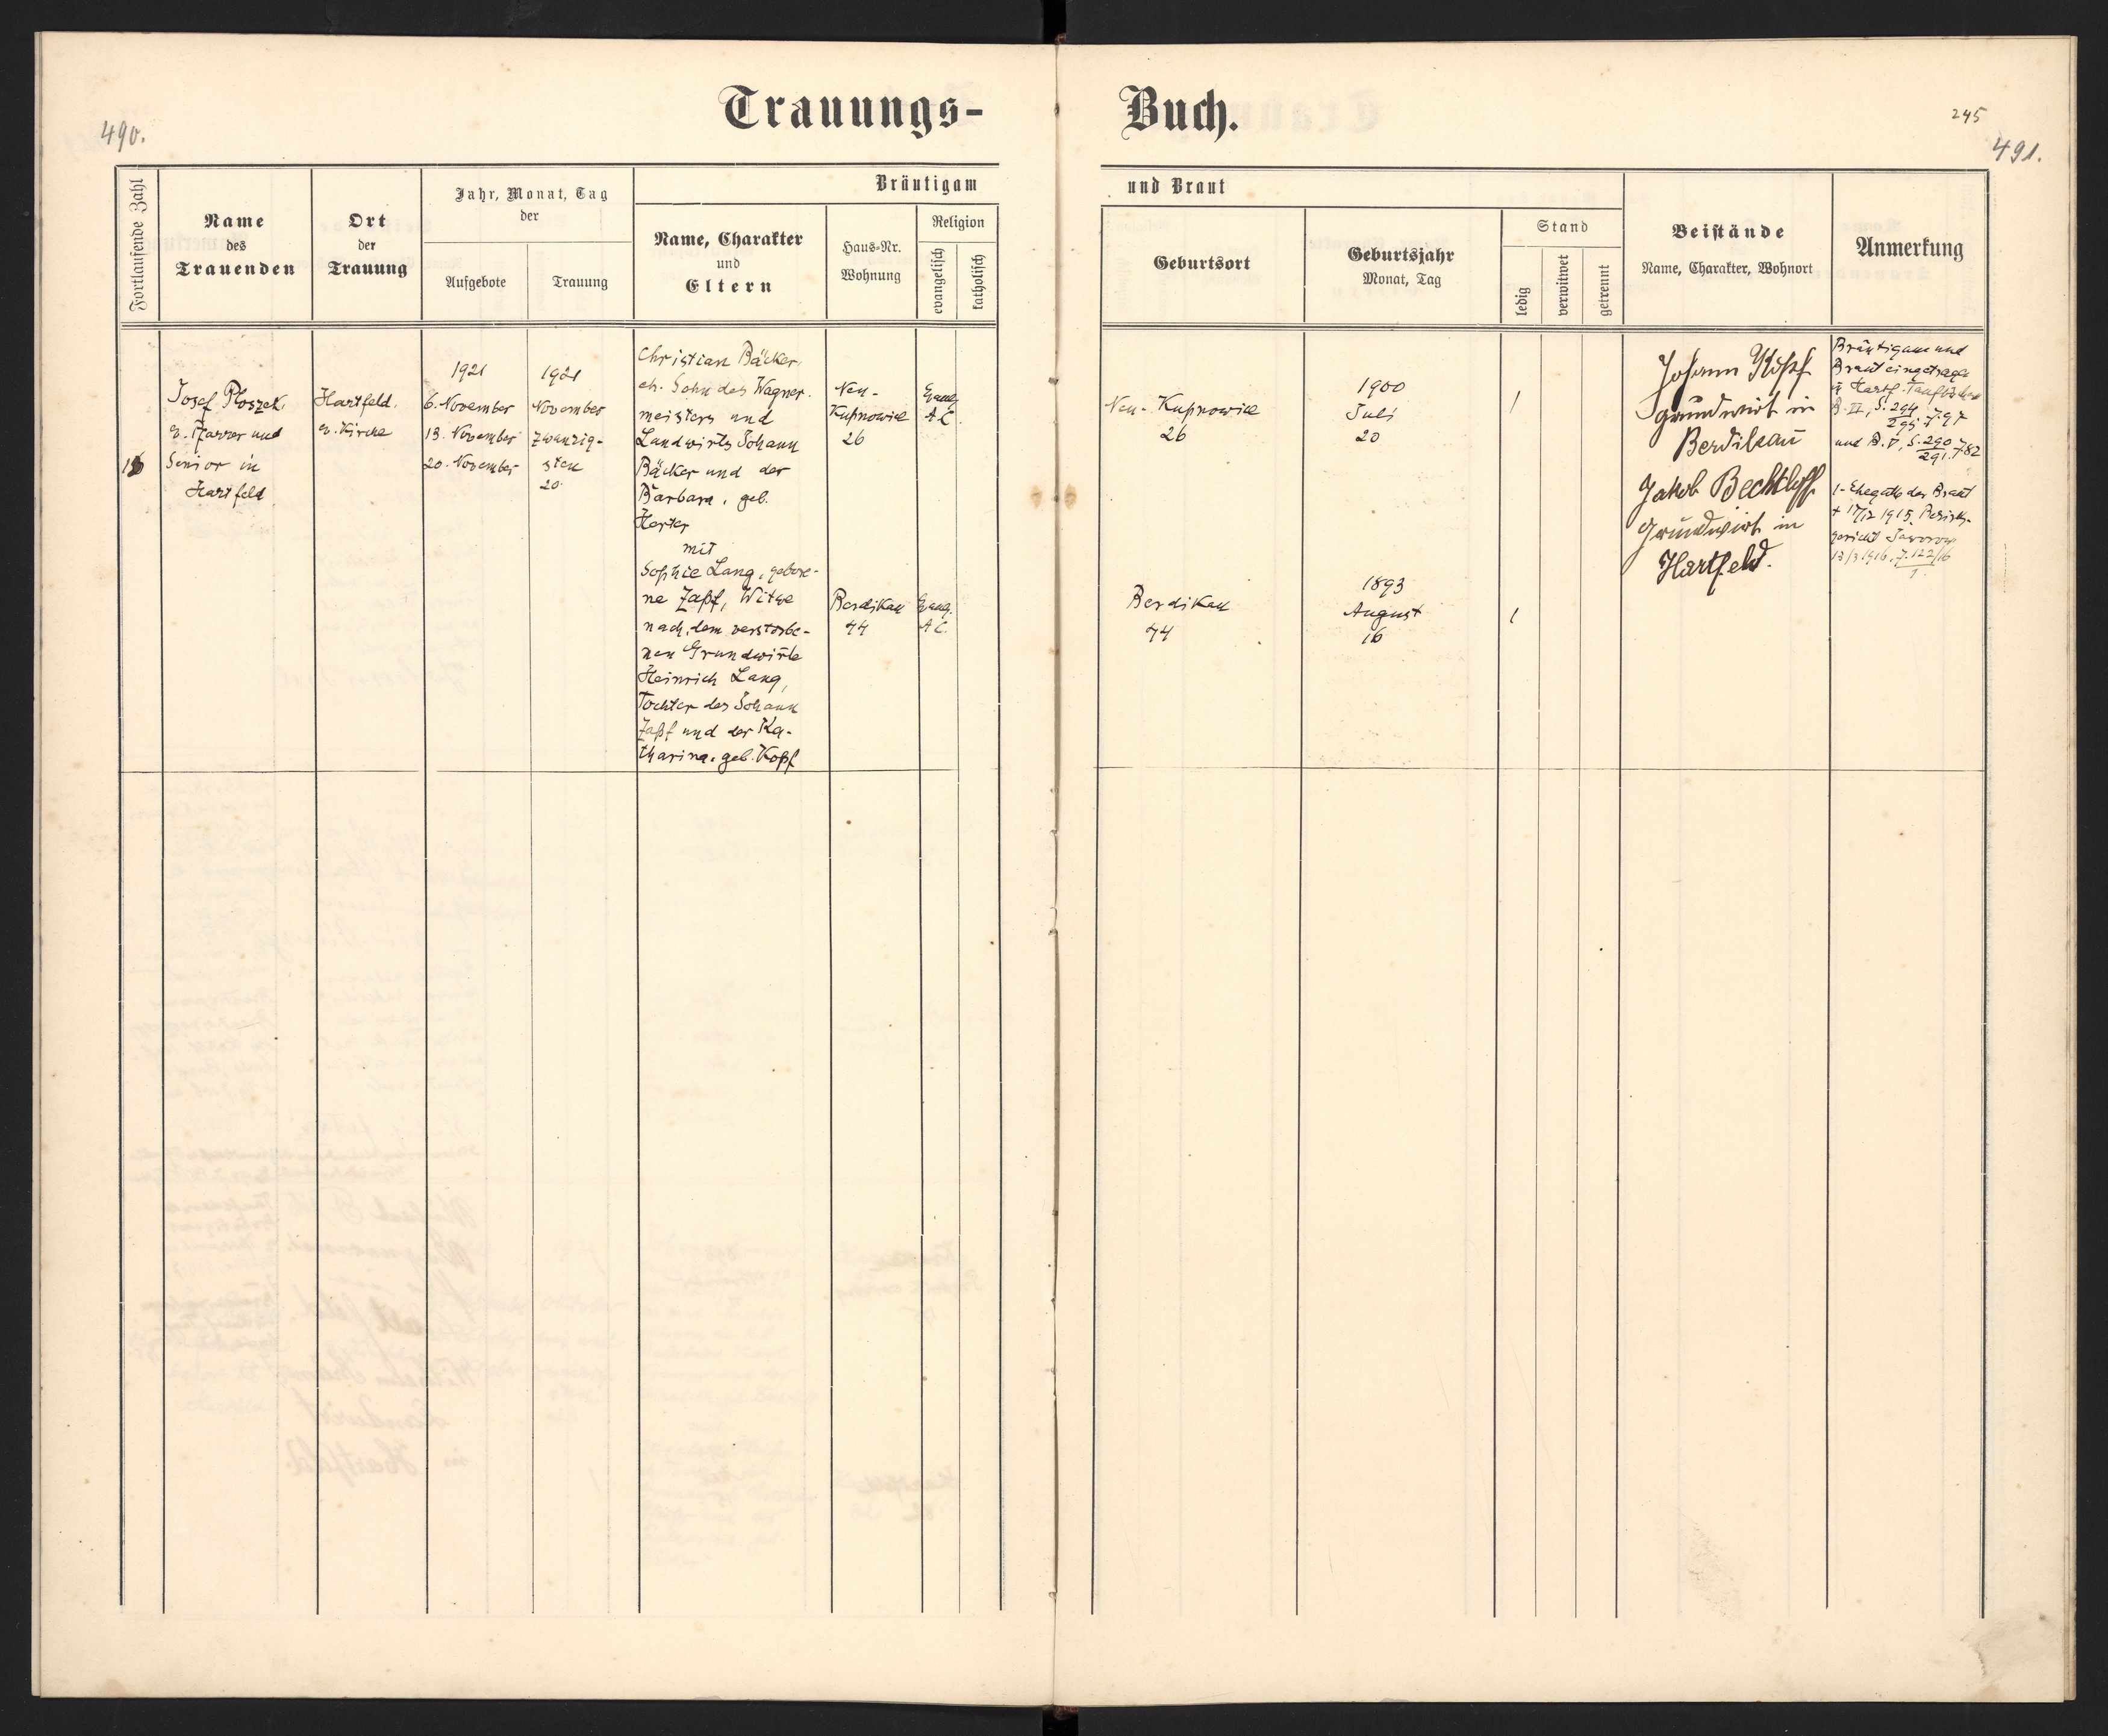 490.
Trauungs-
Buch.
245
491.
Fortlaufende Zahl
Name
des
Trauenden
Ort
der
Trauung
Jahr, Monat, Tag
der
Aufgebote
Trauung
Bräutigam
Name, Charakter
und
Eltern
Haus-Nr.
Wohnung
Religion
evangelisch
katholisch
und Braut
Geburtsort
Geburtsjahr
Monat, Tag
Stand
ledig
verwitwet
getrennt
Beistände
Name, Charakter, Wohnort
Anmerkung
Josef Ploszek,
e. Pfarrer und
Senior in
Hartfeld
Hartfeld.
e. Kirche
1921
6. November
13. November
20. November
1921
November
zwanzig-
sten
20.
Christian Bäcker,
eh. Sohn des Wagner-
meisters und
Landwirts Johann
Bäcker und der
Barbara, geb.
mit
Sophie Lang, gebore-
ne Zapf, Witwe
nach dem verstorbe-
nen Grundwirte
Heinrich Lang,
Tochter des Johann
Zapf und der Ka-
tharina, geb. Kopf
Neu-
Kupnowice
26
Evang.
A C.
Berdikau
44
Evang.
A C.
Neu-Kupnowice
26
1900
Juli
20
1
Berdikau
44
1893
August
16
1
Johann Kopf
Grundwirt in
Berdikau
Jakob Bechtloff
Grundwirt in
Hartfeld.
Bräutigam und
Braut eingetragen
in Hartf. Taufbücher
B. II, S. 294
295. Z. 97
und B. V, S. 290
291. Z. 82
1. Ehegatte der Braut
1915. Bezirks-
gericht Jaworow
13/3 1916, Z. 122/16
1